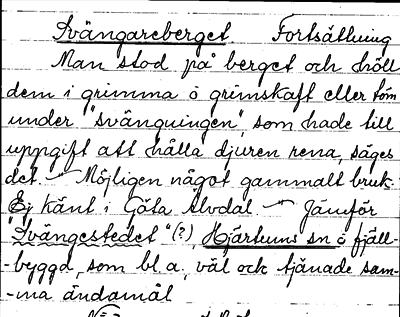 Svängareberget Fortsättning
Man stod på berget och höll
dem i grimma o grimskaft eller töm
under "svängningen", som hade till
uppgift att hålla djuren rena, säges
det. — Möjligen något gammalt bruk.
Ej känt i Göta Älvdal. — Jämför
"Svängestedet" (?), Hjärtums sn o fjäll-
-byggd, som bl.a. väl ock tjänade sam-
-ma ändamål